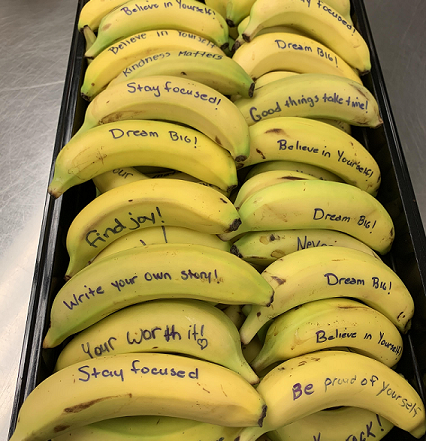 Believe in Yourself!
Believe in Yourself!
Kindness Matters
Stay focused!
Dream BIG!
our
find joy!
Write your own story!
Your worth it!
Stay focused
stay focused!
Dream BIG!
Good things take time!
Believe in Yourself!
Dream BIG!
Never
Dream BIG!
Believe in Yourself!
Be proud of yourself